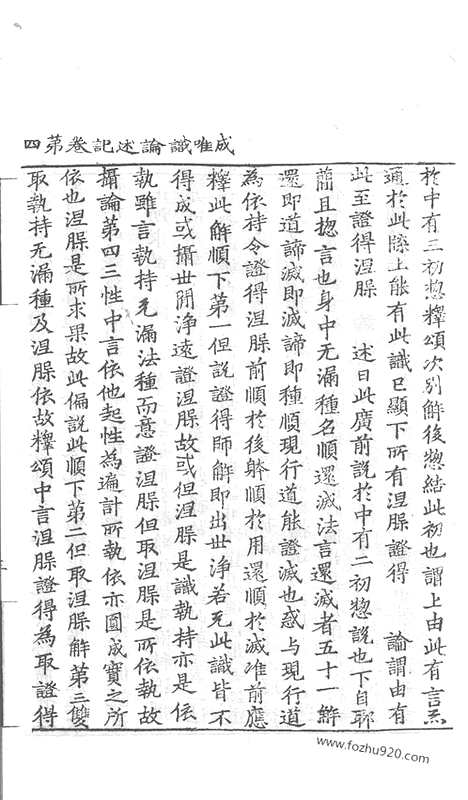 成唯識論述記卷第四
於中有三初惣釋頌次別解後惣結此初也謂上由此有言亦
通於此際上能有此識已顯下所有涅脲證得 論謂由有
此至證得涅脲 述曰此廣前說於中有二初惣說也下自耶
蕳且惣言也身中无漏種名順還滅法言還滅者五十一解
還即道諦滅即滅諦即種順現行道能證滅也或与現行道
為依持令證得涅脲前順於後躰順於用還順於滅准前應
釋此解順下第一但說證得師解即出世淨若无此識皆不
得成或攝世閒淨遠證涅脲故或但涅脲是識執持亦是依
執雖言執持无漏法種而意證涅脲但取涅脲是所依執故
攝論第四三性中言依他起性為遍計所執依亦圓成實之所
依也涅脲是所求果故此偏說此順下第二但取涅脲解第三雙
取執持无漏種及涅脲依故釋頌中言涅脲證得為取證得
www.fozhu920.com